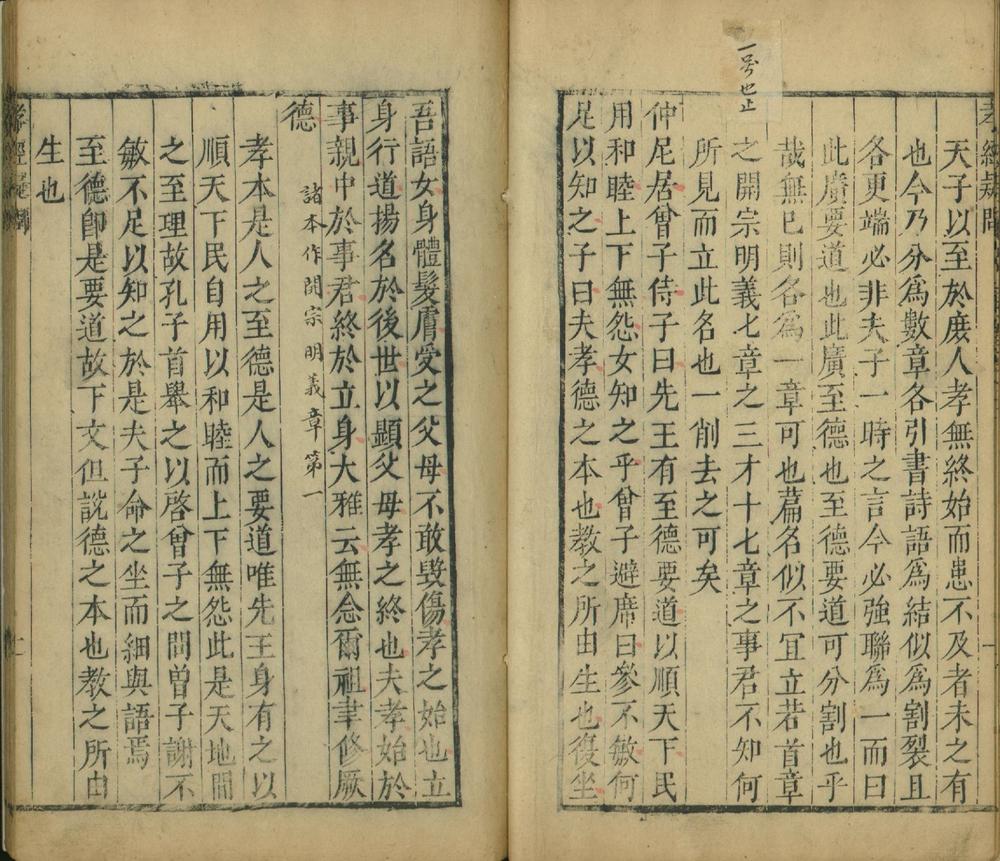 一号也止
孝經疑問
天子以至於庻人孝無終始而患不及者未之有
也今乃分爲數章各引書詩語爲結似爲割裂且
各更端必非夫子一時之言今必強聯爲一而曰
此廣要道也此廣至德也至德要道可分割也乎
哉無已則名爲一章可也篇名似不冝立若首章
之開宗明義七章之三才十七章之事君不知何
所見而立此名也一削去之可矣
仲尼居曾子侍子曰先王有至德要道以順天下民
用和睦上下無怨女知之乎曾子避席曰參不敏何
足以知之子曰夫孝德之本也教之所由生也復坐
吾語女身體髮膚受之父母不敢毀傷孝之始也立
身行道揚名於後世以顯父母孝之終也夫孝始於
事親中於事君終於立身大雅云無念爾祖聿修厥
德
諸本作開宗明義章第一
孝本是人之至德是人之要道唯先王身有之以
順天下民自用以和睦而上下無怨此是天地間
之至理故孔子首舉之以啓曾子之問曽子謝不
敏不足以知之於是夫子命之坐而細與語焉
至德卽是要道故下文但說德之本也教之所由
生也